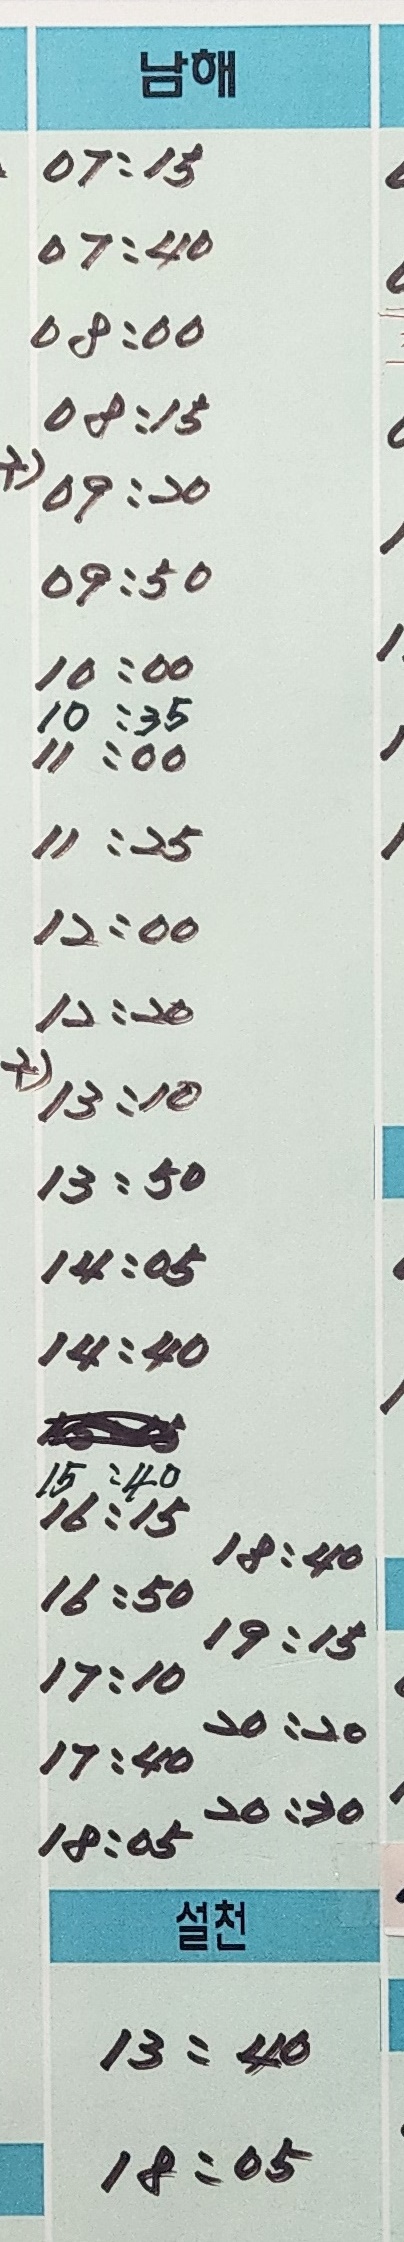 남해
07:15
07:40
08:00
08:15
09:20
09:50
10:00
10:35
11:00
11:25
12:00
12:20
13:10
13:50
14:05
14:40
15:40
16:15
16:50
17:10
17:40
18:05
18:40
19:15
20:20
20:30
설천
13:40
18:05